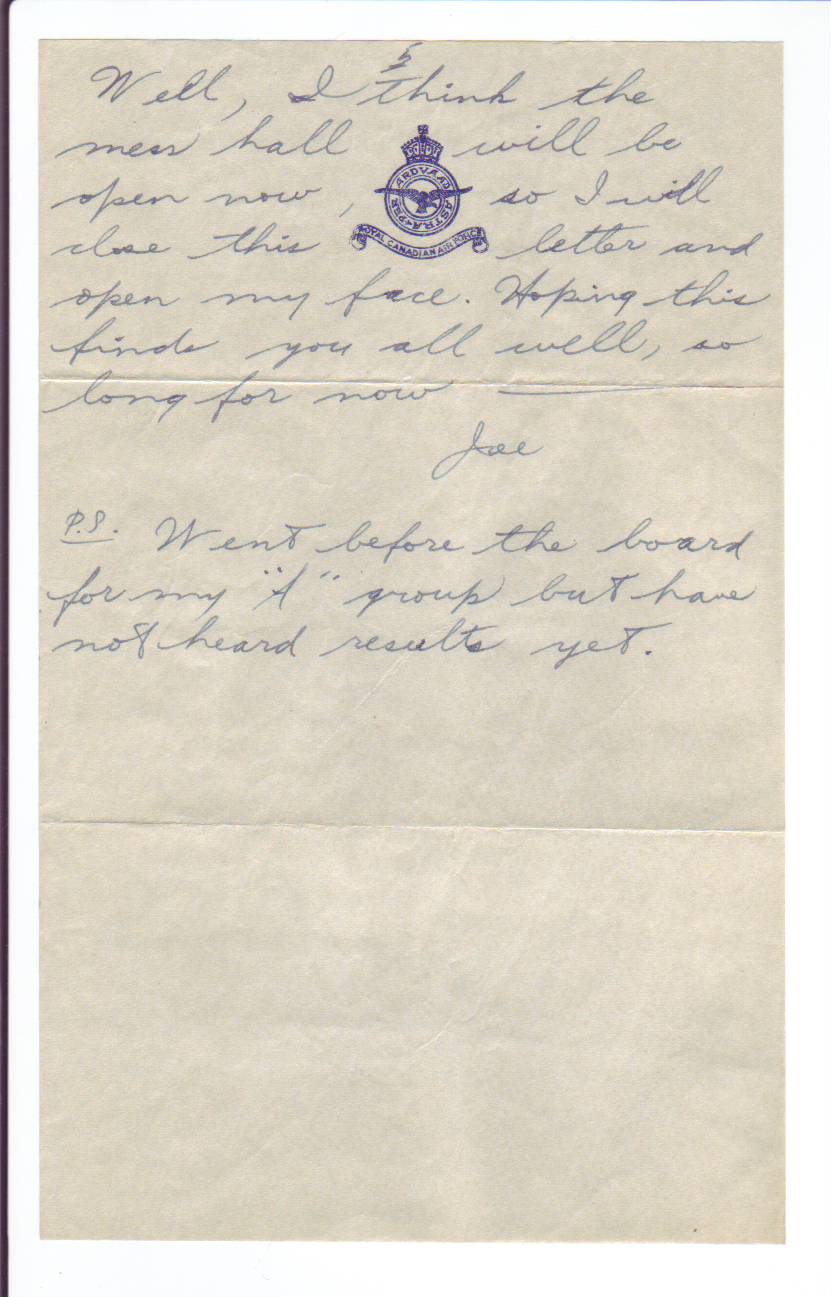 5
Well, I think the
mess hall will be
open now, so I will
close this letter and
open my face. Hoping this
finds you all well, so
long for now ———
Joe
PER ARDVA AD ASTRA
ROYAL CANADIAN AIR FORCE
P.S. Went before the board
for my "A" group but have
not heard results yet.